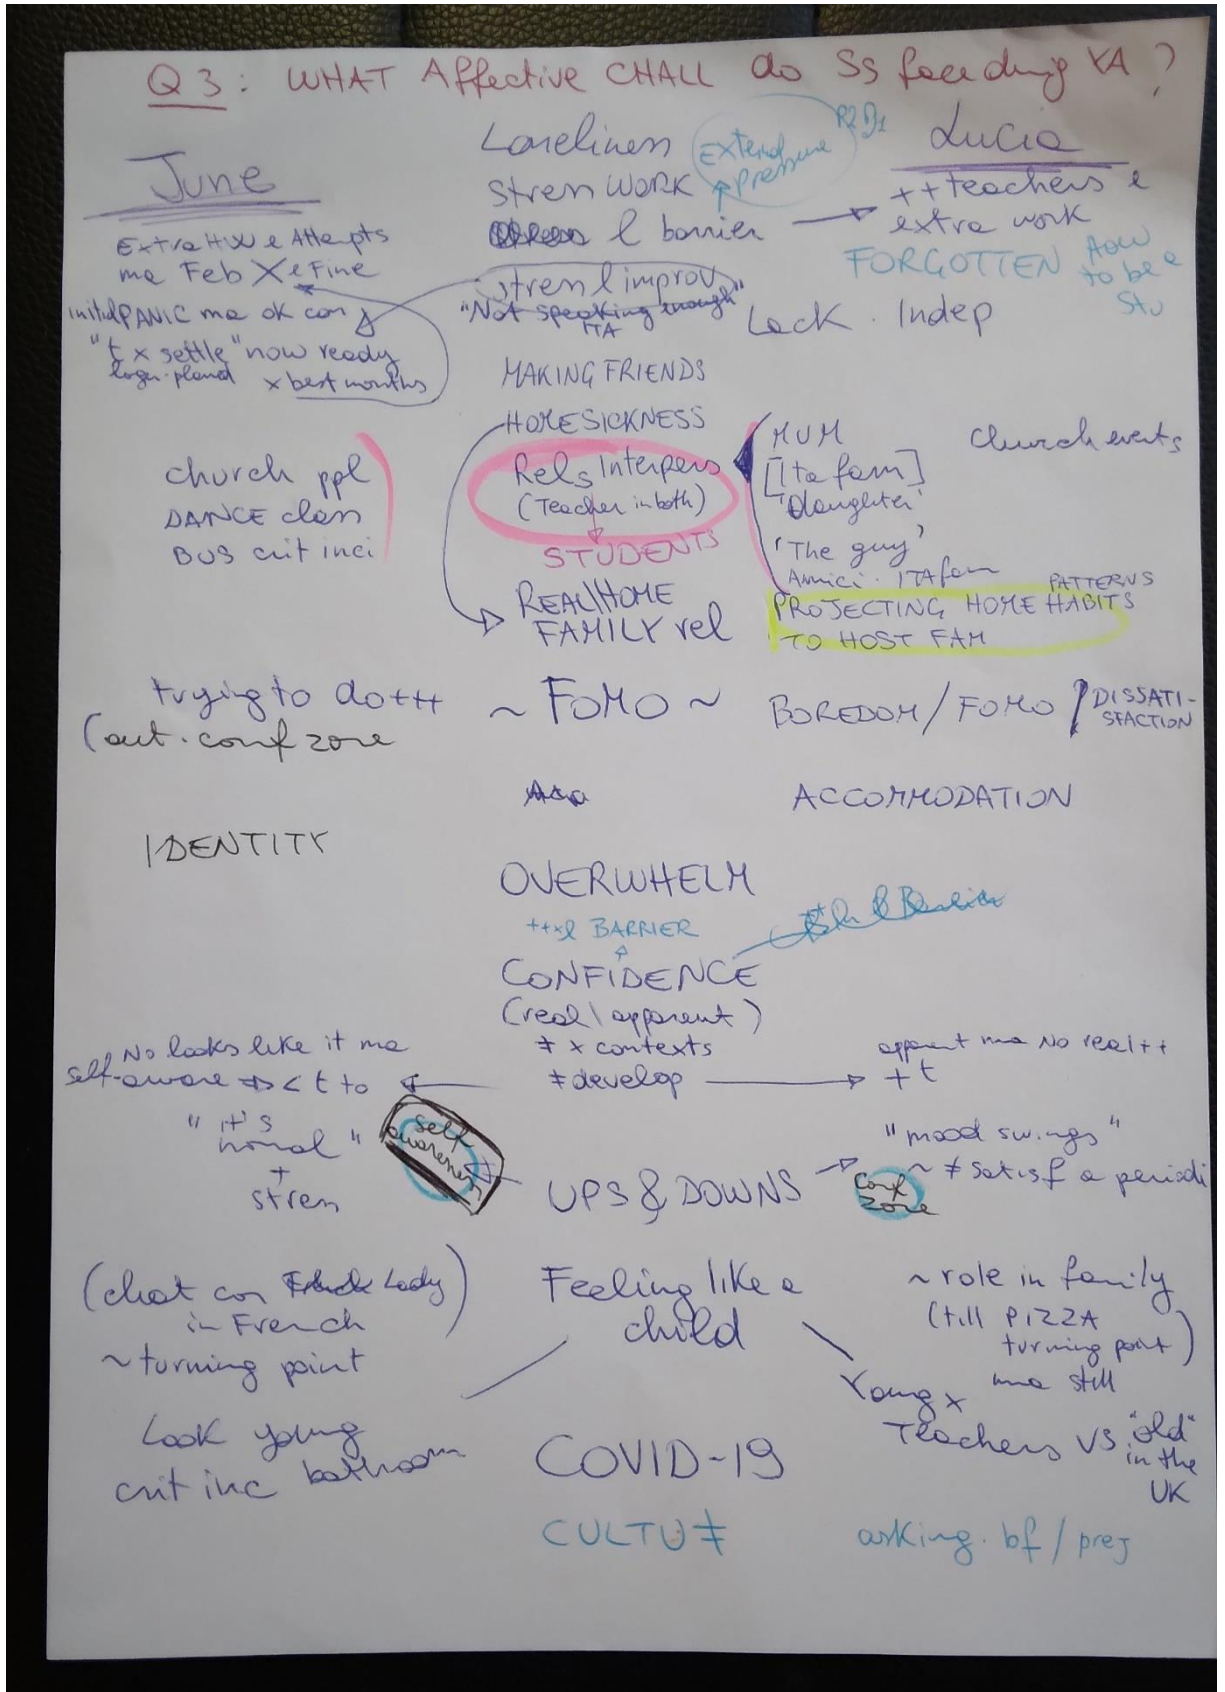 Q3: WHAT Affective CHALL do Ss face during YA?
June
Extra HW e Attepts
ma Feb X e Fine
initial PANIC ma ok con
"t x settle" now ready
x best months
church ppl
DANCE class
BUS crit inci
trying to do +++
(out. conf zone
IDENTITY
No looks like it ma
self-aware => < t to
"it's
normal"
+
stress
self
awareness
(chat con Lady)
in French
~turning point
Look young
crit inc bathroom
Loneliness
External
pressure
R2D1
stress WORK
l barrier
stress l improv
"Not speaking enough"
ITA
MAKING FRIENDS
HOMESICKNESS
Rels Interpers
(Teacher in both)
STUDENTS
REAL/HOME
FAMILY rel
~ FOMO ~
OVERWHELM
++xl BARRIER
CONFIDENCE
(real \ apparent)
≠ x contexts
≠ develop
UPS & DOWNS
Feeling like a
child
COVID-19
CULTU ≠
Lucia
++ teachers e
extra work
FORGOTTEN how
to be a
Stu
Lack. Indep
MUM
[Ita fam]
'Daughter'
Church events
'The guy'
Amici. ITA fam
PATTERNS
PROJECTING HOME HABITS
TO HOST FAM
BOREDOM / FOMO / DISSATI-
SFACTION
ACCOMMODATION
apparent ma No real ++
+ t
"mood swings"
~ ≠ satisf a periodi
Conf
zone
~ role in family
(till PIZZA
turning point)
ma still
Young x
Teachers VS "old"
in the
UK
asking. bf / prej